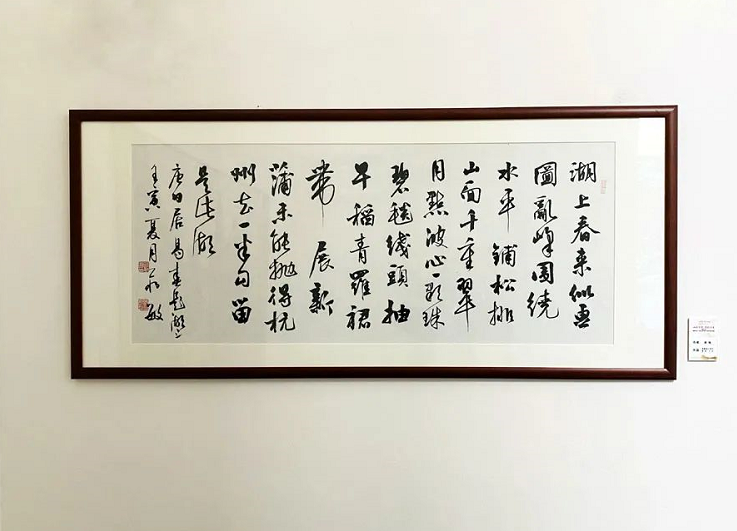 湖上春来似畫
圖亂峰圍繞
水平鋪松排
山面千重翠
月點波心一顆珠
碧毯綫頭抽
早稻青羅裙
帶展新
蒲未能抛得杭
州去一半勾留
是此湖
唐白居易春題湖上
壬寅夏月敏